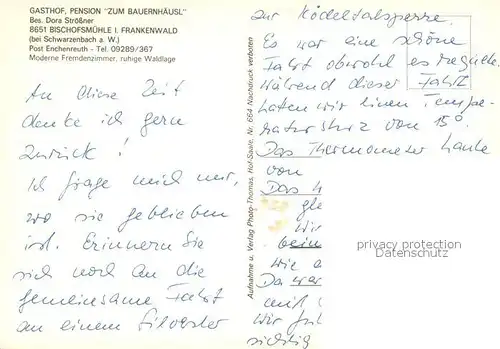 GASTHOF, PENSION "ZUM BAUERNHÄUSL"
Bes. Dora Strößner
8651 BISCHOFSMÜHLE I. FRANKENWALD
(bei Schwarzenbach a. W.)
Post Enchenreuth - Tel. 09289/367
Moderne Fremdenzimmer, ruhige Waldlage
An diese Zeit
denke ich gern
zurück!
Ich frage mich nur,
wo sie geblieben
ist. Erinnern Sie
sich noch an die
gemeinsame Fahrt
an einem Silvester
Aufnahme u. Verlag Photo-Thomas, Hof-Saale, Nr. 664 Nachdruck verboten
zur Ködeltalsperre.
Es war eine schöne
Fahrt obwohl es regnete.
Während dieser Fahrt
hatten wir einen Tempe-
ratursturz von 15°.
Das Thermometer
von
Das
wir
wie
Da war
wir
sichtig
privacy protection
Datenschutz